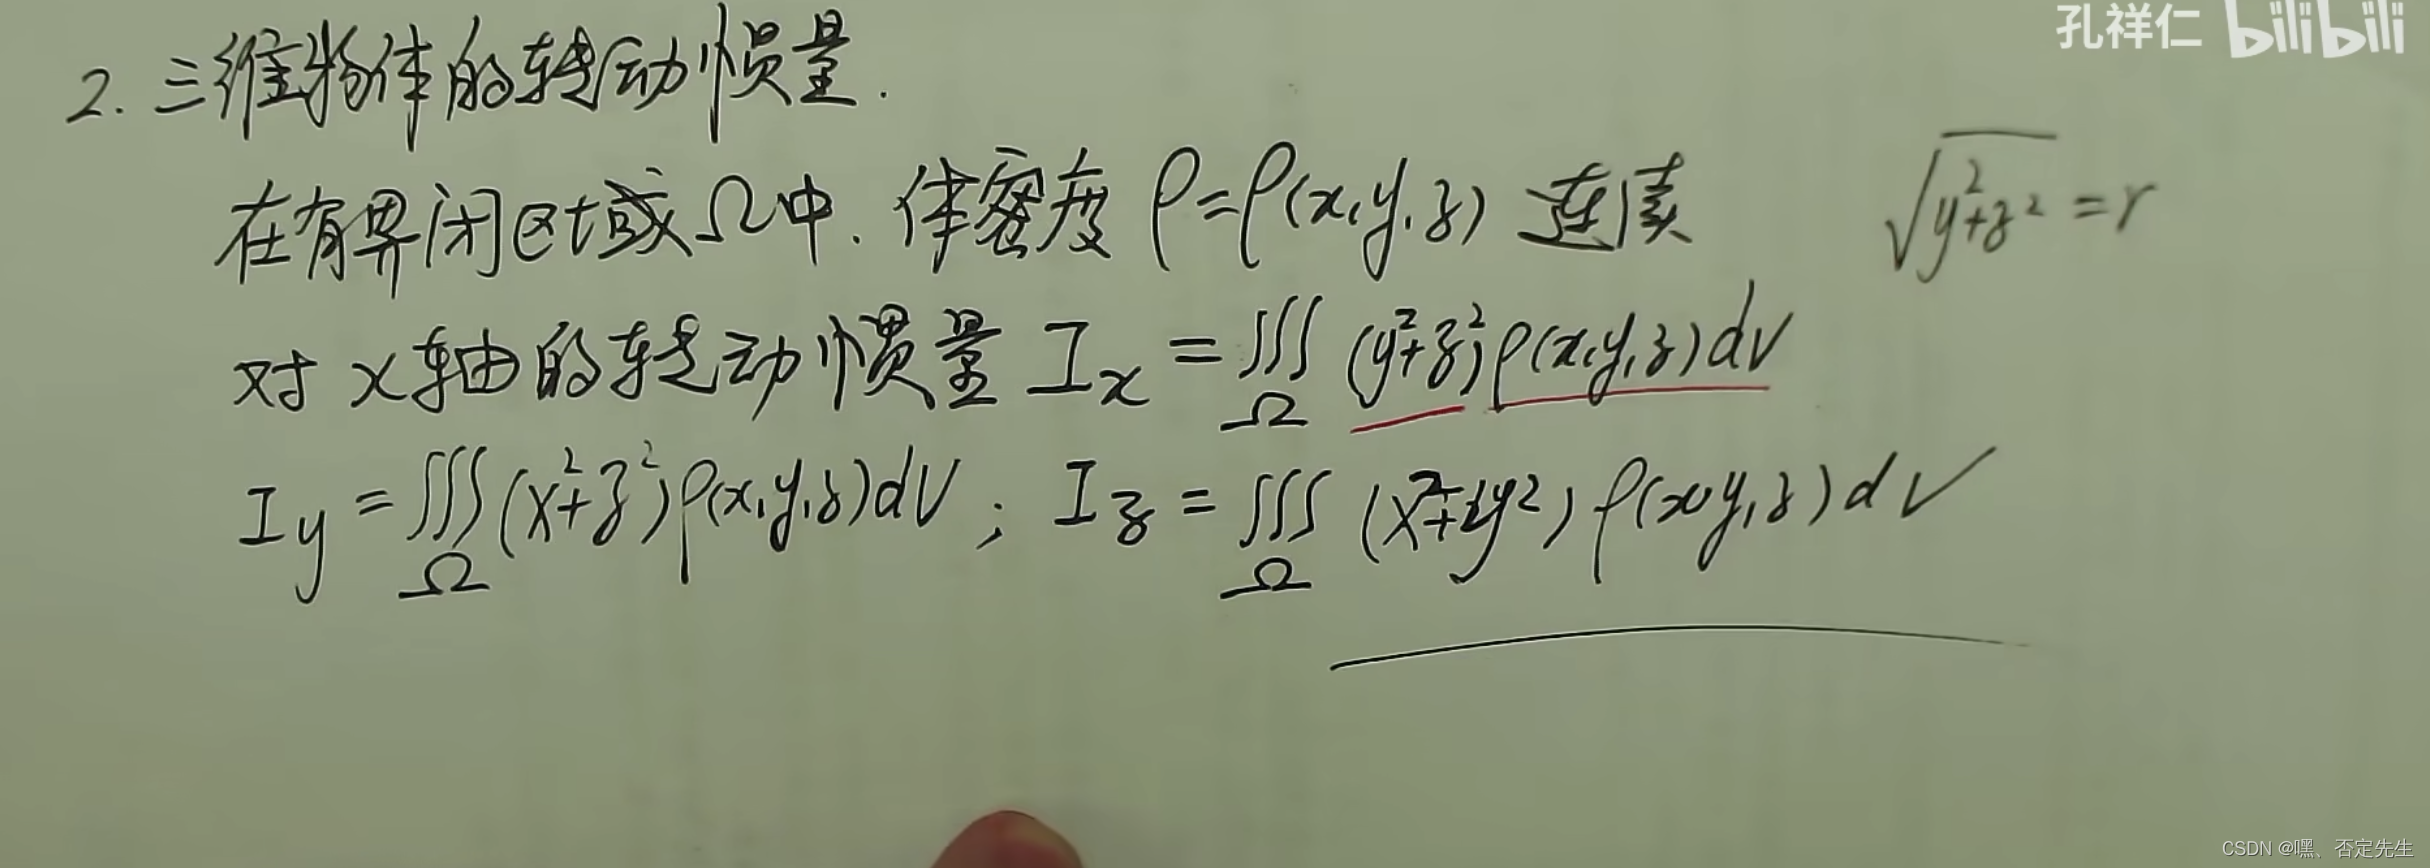 孔祥仁 bilibili
2. 三维物体的转动惯量.
在有界闭区域Ω中. 体密度 ρ=ρ(x,y,z) 连续
√(y²+z²) = r
对 x轴的转动惯量 Ix = ∭Ω (y²+z²)ρ(x,y,z)dV
Iy = ∭Ω (x²+z²)ρ(x,y,z)dV ; Iz = ∭Ω (x²+y²)ρ(x,y,z)dV
CSDN @嘿、否定先生